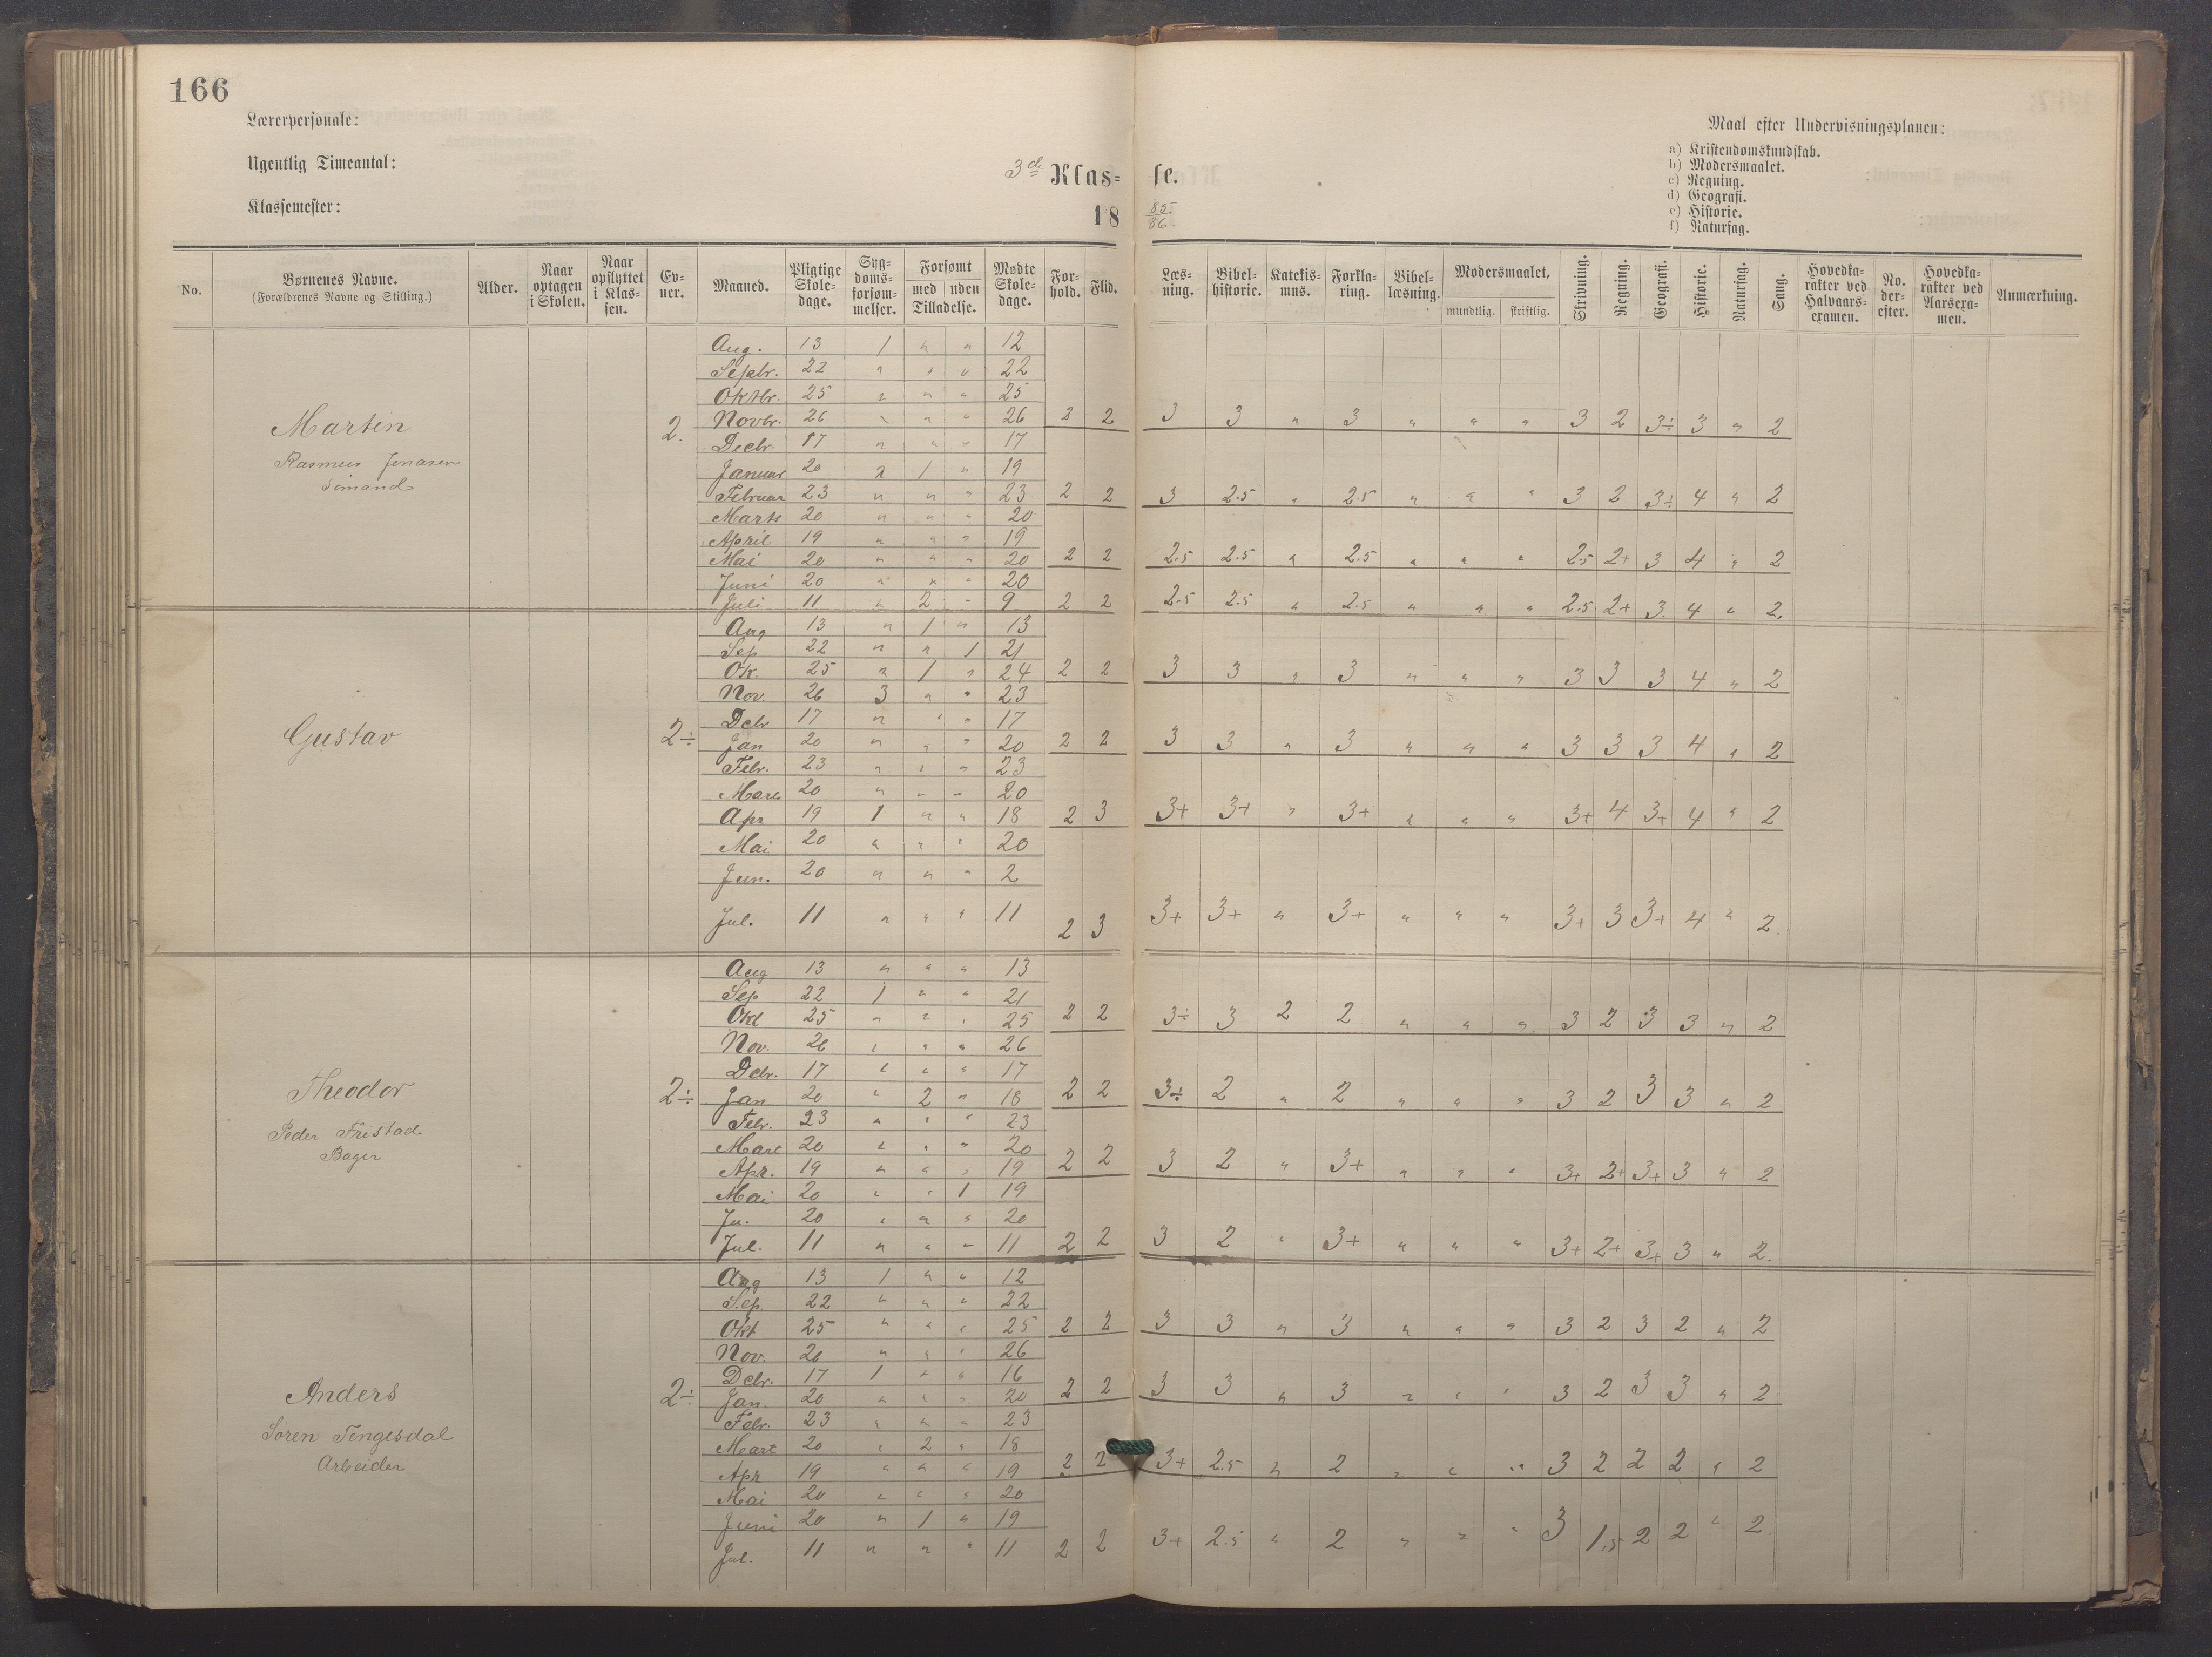 166
Lærerpersonale:
Ugentlig Timeantal:
Klassemester:
3de Klas= se.
18 85/86.
Maal efter Undervisningsplanen:
a) Kristendomskundskab.
b) Modersmaalet.
c) Regning.
d) Geografi.
e) Historie.
f) Naturfag.
No. | Børnenes Navne. (Forældrenes Navne og Stilling.) | Alder. | Naar optagen i Skolen. | Naar opflyttet i Klas- sen. | Ev- ner. | Maaned. | Pligtige Skole- dage. | Syg- doms- forsøm- melser. | Forsømt med uden Tilladelse. | Mødte Skole- dage. | For- hold. | Flid. | Læs- ning. | Bibel- historie. | Katekis- mus. | Forkla- ring. | Bibel- læsning. | Modersmaalet, mundtlig. skriftlig. | Skrivning. | Regning. | Geografi. | Historie. | Naturfag. | Sang. | Hovedka- rakter ved Halvaars- examen. | No. der- efter. | Hovedka- rakter ved Aarsexa- men. | Anmærkning.
Martin
Rasmus Jonasen
Sømand
2.
Aug. 13 1 " " 12
Septbr. 22 " " " 22
Oktbr. 25 " " " 25
Novbr. 26 " " " 26 2 2 3 3 " 3 " " " 3 2 3÷ 3 " 2
Decbr. 17 " " " 17
Januar 20 " 1 " 19
Februar 23 " " " 23 2 2 3 2.5 " 2.5 " " " 3 2 3÷ 4 " 2
Marts 20 " " " 20
April 19 " " " 19
Mai 20 " " " 20 2 2 2.5 2.5 " 2.5 " " " 2.5 2+ 3 4 " 2
Juni 20 " " " 20
Juli 11 " 2 " 9 2 2 2.5 2.5 " 2.5 " " " 2.5 2+ 3. 4 " 2.
Gustav
2÷
Aug 13 " 1 " 13
Sep 22 " " 1 21
Ok. 25 " 1 " 24 2 2 3 3 " 3 " " " 3 3 3 4 " 2
Nov. 26 3 " " 23
Debr 17 " " " 17
Jan 20 " " " 20 2 2 3 3 " 3 " " " 3 3 3 4 " 2
Febr. 23 " " " 23
Mars 20 " " " 20
Apr 19 1 " " 18 2 3 3+ 3+ " 3+ " " " 3+ 4 3+ 4 " 2
Mai 20 " " " 20
Jun. 20 " " " 2
Jul. 11 " " " 11 2 3 3+ 3+ " 3+ " " " 3+ 3 3+ 4 " 2.
Theodor
Peder Fristad
Bager
2÷
Aug 13 " " " 13
Sep 22 1 " " 21
Okt 25 " " " 25 2 2 3÷ 3 2 2 " " " 3 2 3 3 " 2
Nov. 26 " " " 26
Debr. 17 " " " 17
Jan 20 " 2 " 18 2 2 3÷ 2 " 2 " " " 3 2 3 3 " 2
Febr. 23 " " " 23
Mars 20 " " " 20
Apr. 19 " " " 19 2 2 3 2 " 3+ " " " 3+ 2+ 3+ 3 " 2
Mai 20 " " 1 19
Ju. 20 " " " 20
Jul. 11 " " " 11 2 2 3 2 " 3+ " " " 3+ 2+ 3+ 3 " 2.
Anders
Søren Tengesdal
Arbeider
2÷
Aug 13 1 " " 12
Sep. 22 " " " 22
Okt 25 " " " 25 2 2 3 3 " 3 " " " 3 2 3 2 " 2
Nov. 26 " " " 26
Debr. 17 1 " " 16
Jan. 20 " " " 20 2 2 3 3 " 3 " " " 3 2 3 3 " 2
Febr. 23 " " " 23
Mars 20 " 2 " 18
Apr 19 " " " 19 2 2 3+ 2.5 " 2 " " " 3 2 2 2 " 2
Mai 20 " " " 20
Juni 20 " 1 " 19
Jul. 11 " " " 11 2 2 3+ 2.5 " 2 " " " 3 1.5 2 2 " 2.